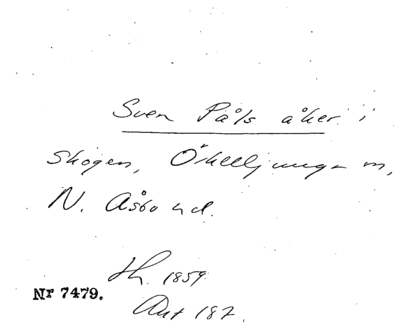 Sven Påls åker i
skogen, Örkelljunga m,
N. Åsbo hd.
Hh. 1859
Nr 7479.
Ant 187.